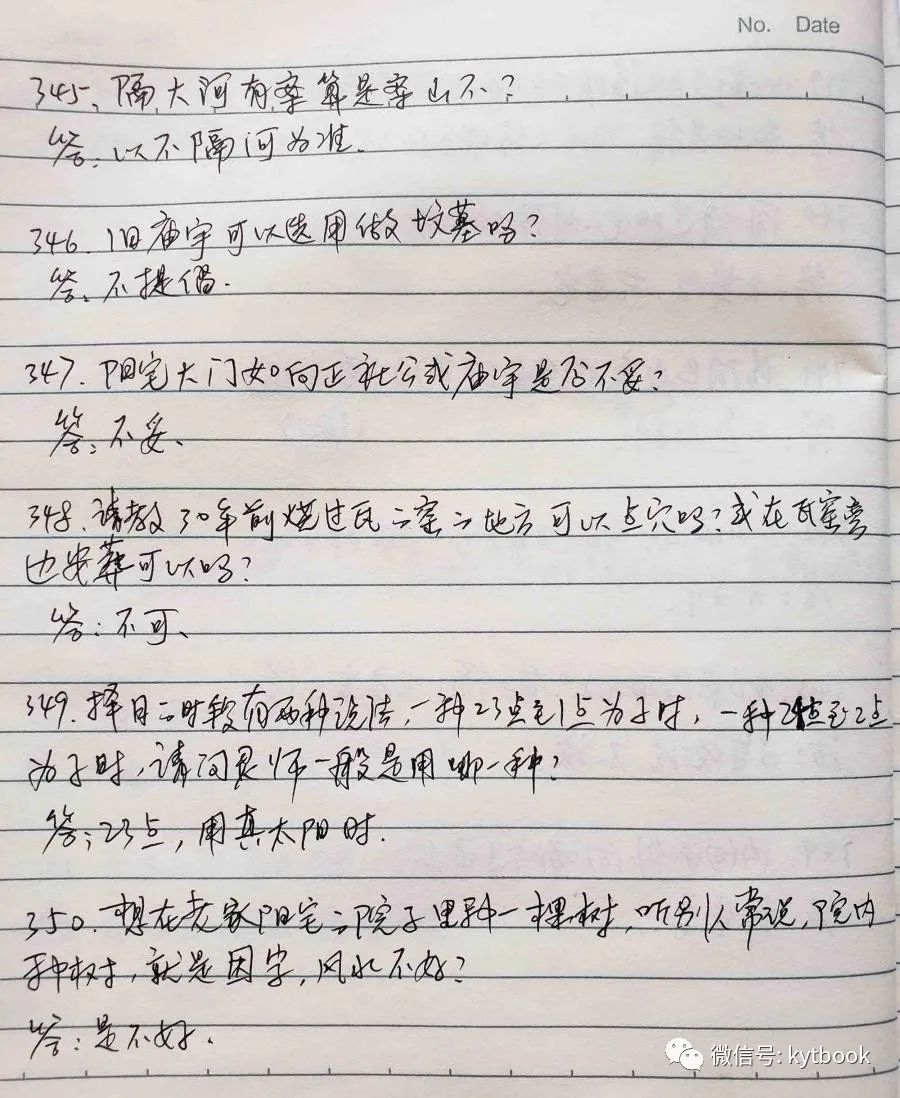 No. Date
345、隔大河有案算是案山不?
答:以不隔河为准.
346.旧庙宇可以选用做坟墓吗?
答、不提倡.
347.阳宅大门如向正社公或庙宇是否不妥?
答:不妥、
348.请教30年前烧过瓦之窑之地方可以点穴吗?或在瓦窑旁
边安葬可以吗?
答:不可、
349.择日之时较有两种说法,一种23点至1点为子时,一种24点至2点
为子时,请问灵师一般是用哪一种?
答:23点,用真太阳时.
350.想在老家阳宅之院子里种一棵树,听别人常说,院内
种树,就是困字,风水不好?
答:是不好.
微信号: kytbook